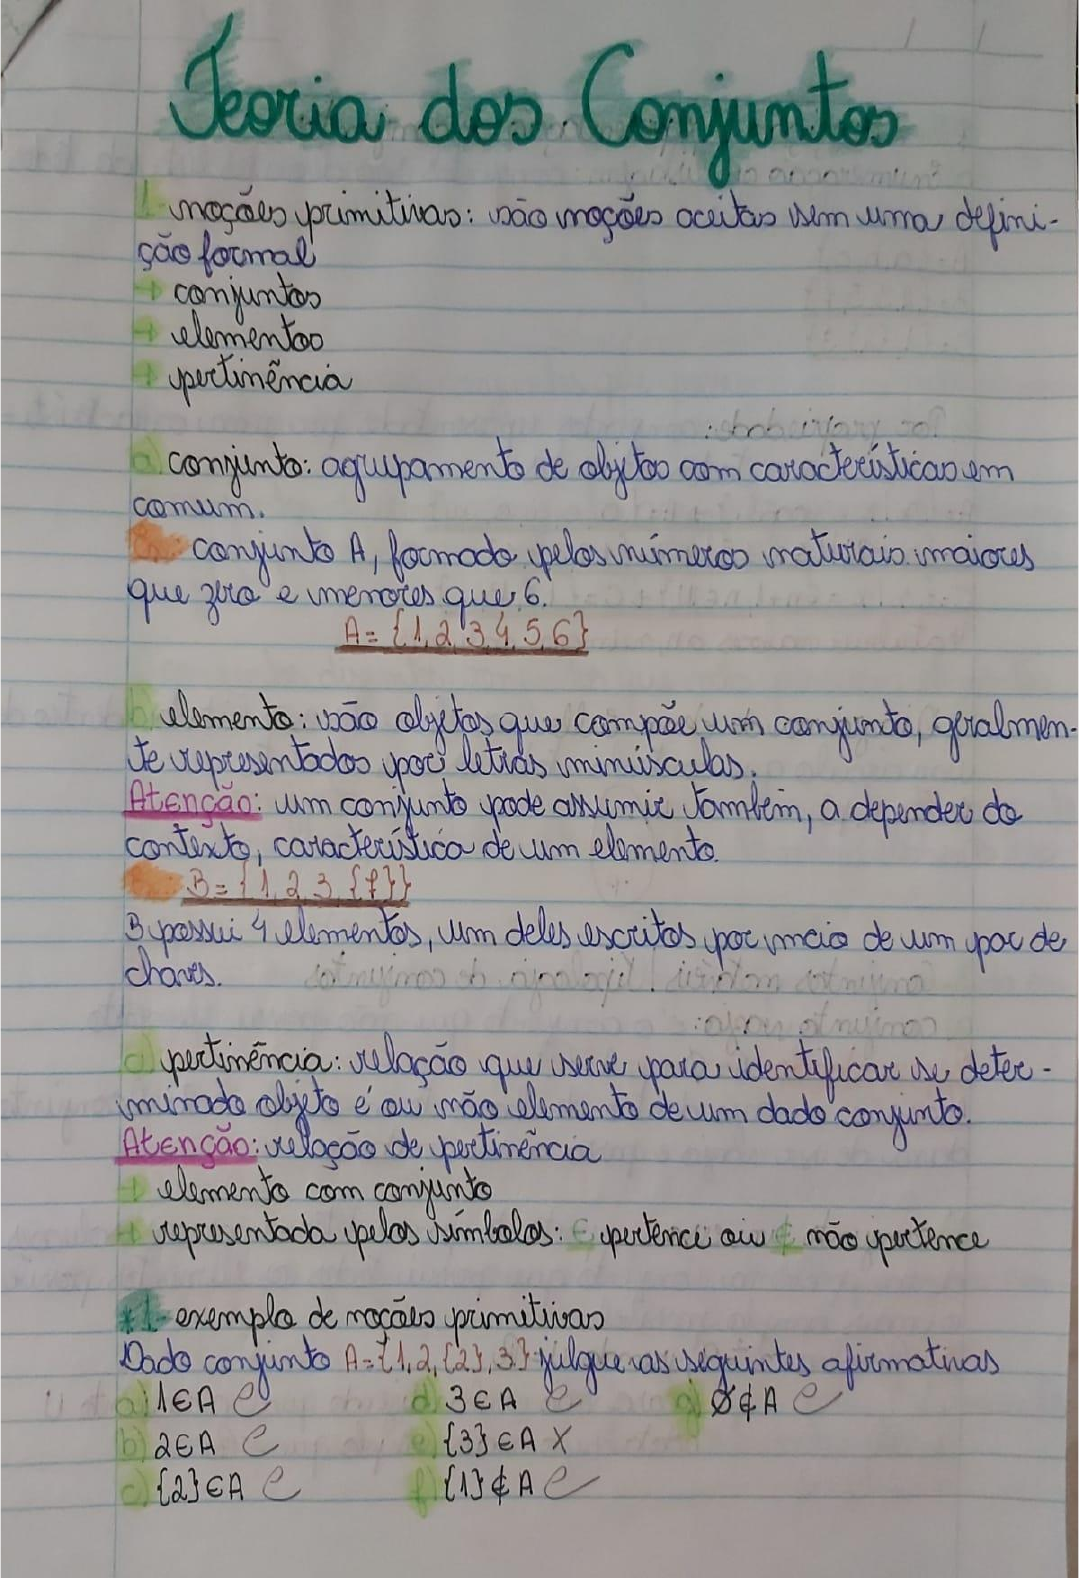 Teoria dos Conjuntos
1- noções primitivas: são noções aceitas sem uma defini-
ção formal
→ conjuntos
→ elementos
→ pertinência
a) conjunto: agrupamento de objetos com características em
comum.
conjunto A, formado pelos números naturais maiores
que zero e menores que 6.
A = {1, 2, 3, 4, 5, 6}
b) elemento: são objetos que compõe um conjunto, geralmen-
te representados por letras minúsculas.
Atenção: um conjunto pode assumir também, a depender do
contexto, característica de um elemento.
B = {1, 2, 3, {7}}
B possui 4 elementos, um deles escritos por meio de um par de
chaves.
c) pertinência: relação que serve para identificar se deter-
minado objeto é ou não elemento de um dado conjunto.
Atenção: relação de pertinência
→ elemento com conjunto
→ representada pelos símbolos: ∈ pertence ou ∉ não pertence
*1- exemplo de noções primitivas
Dado conjunto A={1,2,{2},3} julgue as seguintes afirmativas
a) 1∈A C d) 3∈A C g) ∅∉A C
b) 2∈A C e) {3}∈A X
c) {2}∈A C f) {1}∉A C